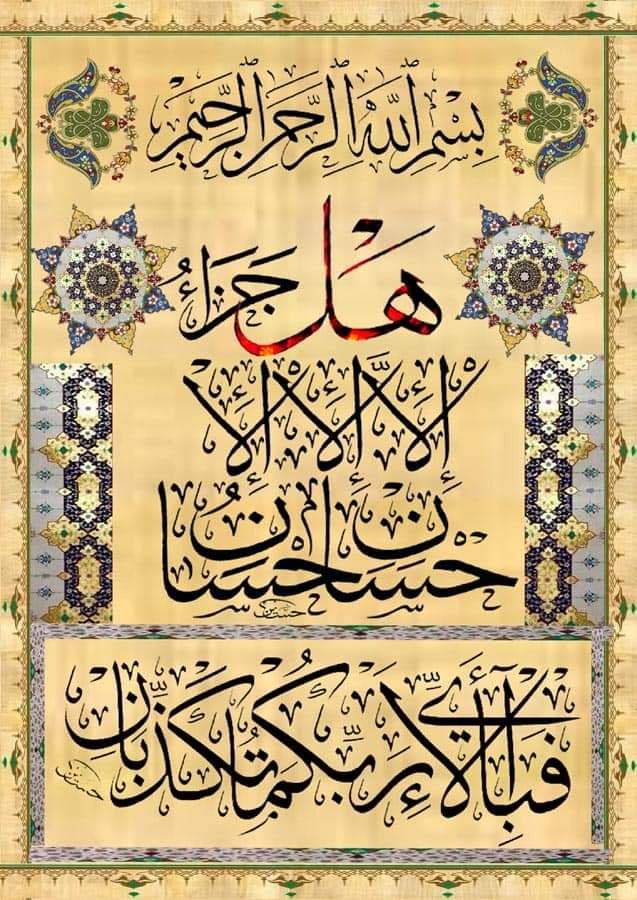 بِسْمِ اللهِ الرَّحْمَنِ الرَّحِيمِ
هَلْ جَزَاءُ
الْإِحْسَانِ إِلَّا الْإِحْسَانُ
فَبِأَيِّ آلَاءِ رَبِّكُمَا تُكَذِّبَانِ